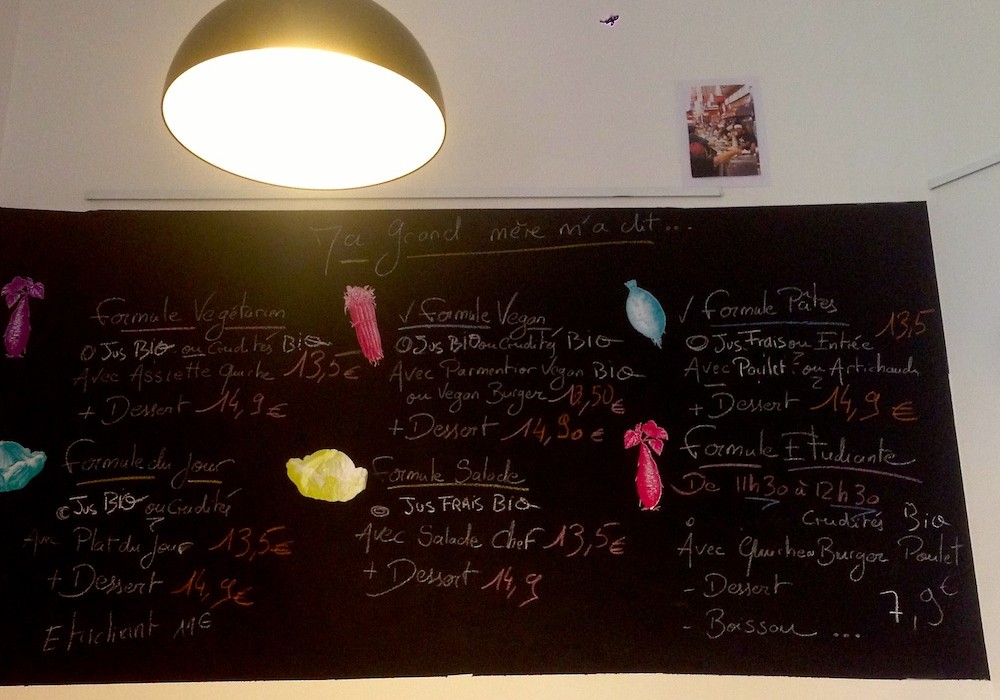 Ma Grand mère m'a dit...
Formule Végétarien
Jus BIO ou Crudités BIO
Avec Assiette Quiche 13,5€
+ Dessert 14,9€
✓ Formule Vegan
Jus BIO ou Crudité BIO
Avec Parmentier Vegan BIO
ou Vegan Burger 13,50€
+ Dessert 14,90€
✓ Formule Pâtes
13,5
Jus Frais ou Entrée
Avec Poulet ? ou Artichauds ?
+ Dessert 14,9€
Formule du Jour
Jus BIO ou Crudité
Avec Plat du Jour 13,5€
+ Dessert 14,9€
Etudiant 11€
Formule Salade
Jus FRAIS BIO
Avec Salade Chef 13,5€
+ Dessert 14,9
Formule Etudiante
De 11h30 à 12h30
Crudités Bio
Avec Quiche ou Burger Poulet
- Dessert
- Boisson ...
7,9€